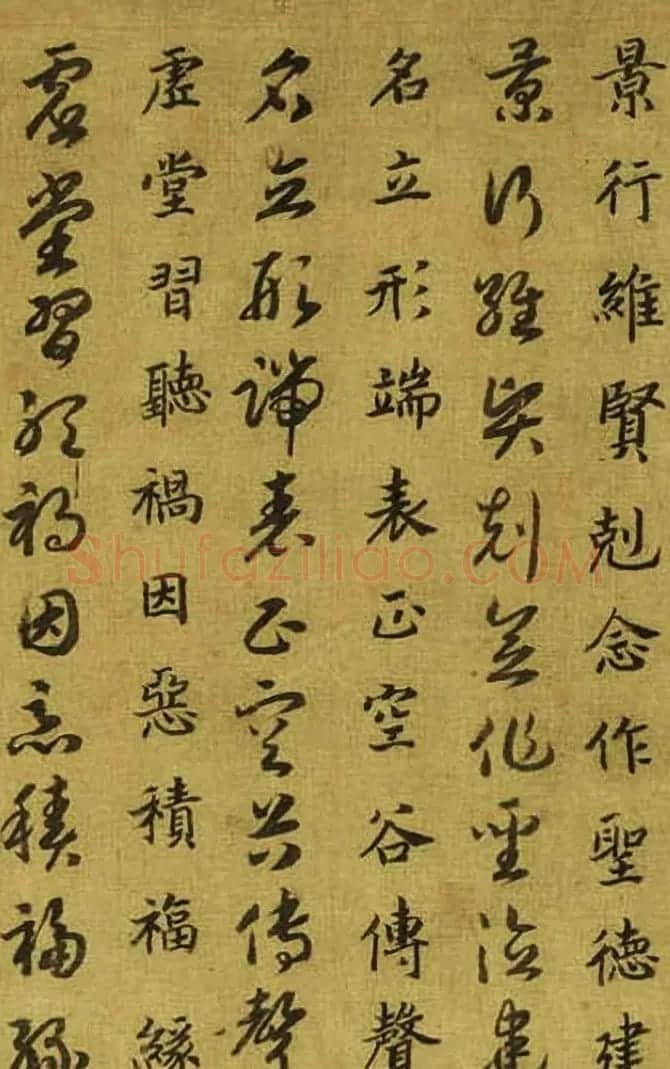 景行維賢剋念作聖德建
景行維賢剋念作聖德建
名立形端表正空谷傳聲
名立形端表正空谷傳聲
虛堂習聽禍因惡積福緣
虛堂習聽禍因惡積福緣
Shufaziliao.COM